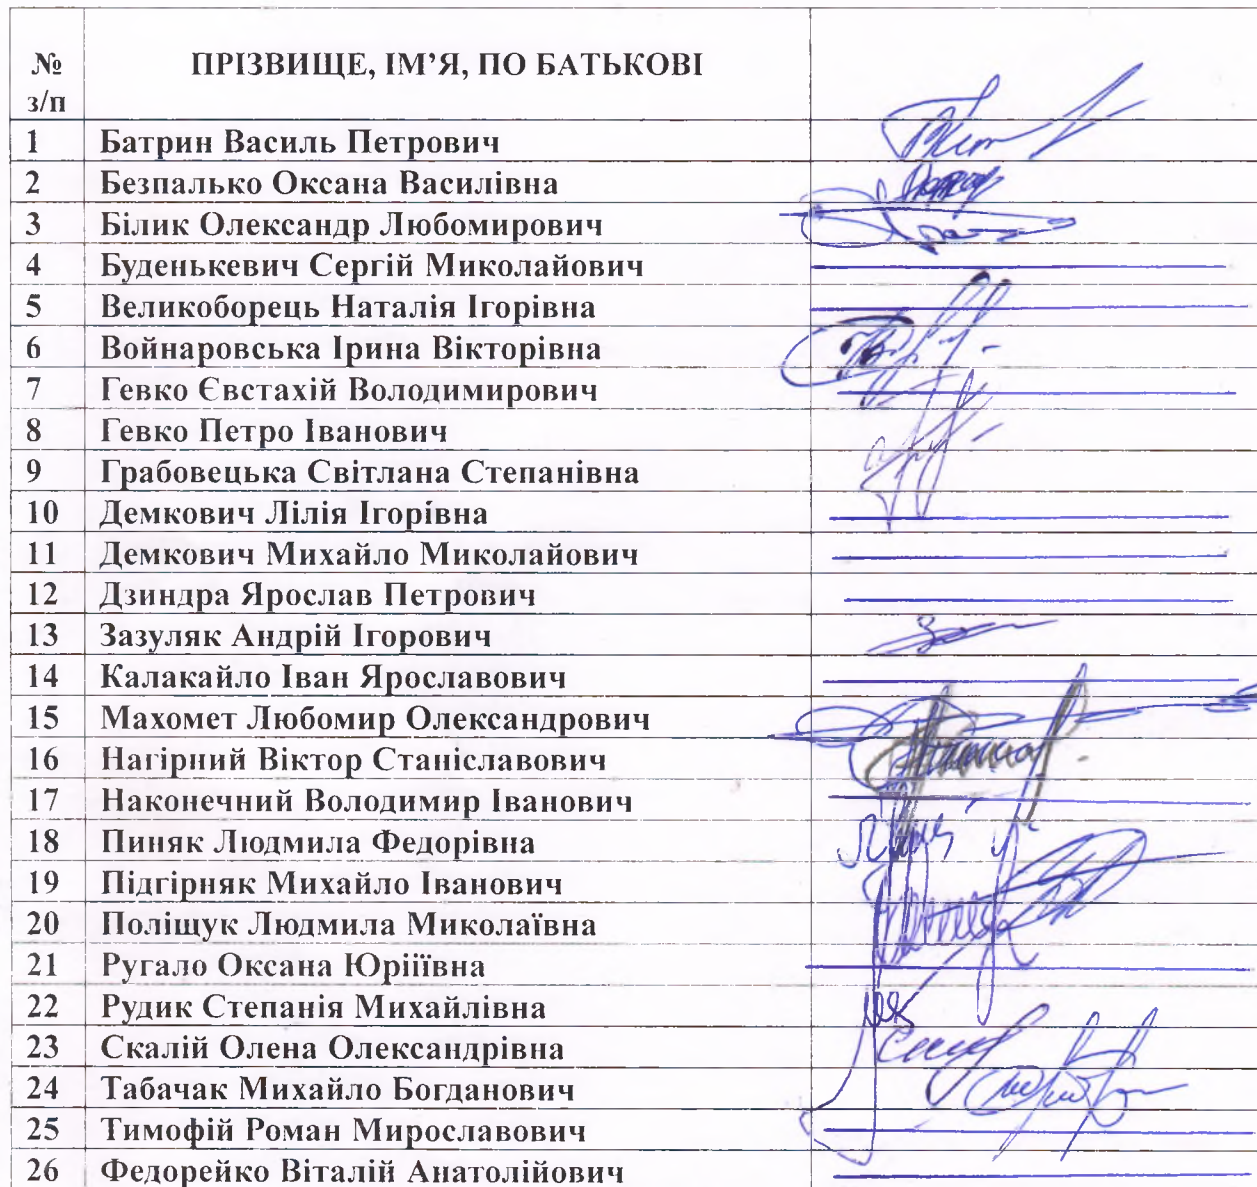 № з/п ПРІЗВИЩЕ, ІМ’Я, ПО БАТЬКОВІ
1 Батрин Василь Петрович
2 Безпалько Оксана Василівна
3 Білик Олександр Любомирович
4 Буденькевич Сергій Миколайович
5 Великоборець Наталія Ігорівна
6 Войнаровська Ірина Вікторівна
7 Гевко Євстахій Володимирович
8 Гевко Петро Іванович
9 Грабовецька Світлана Степанівна
10 Демкович Лілія Ігорівна
11 Демкович Михайло Миколайович
12 Дзиндра Ярослав Петрович
13 Зазуляк Андрій Ігорович
14 Калакайло Іван Ярославович
15 Махомет Любомир Олександрович
16 Нагірний Віктор Станіславович
17 Наконечний Володимир Іванович
18 Пиняк Людмила Федорівна
19 Підгірняк Михайло Іванович
20 Поліщук Людмила Миколаївна
21 Ругало Оксана Юріїівна
22 Рудик Степанія Михайлівна
23 Скалій Олена Олександрівна
24 Табачак Михайло Богданович
25 Тимофій Роман Мирославович
26 Федорейко Віталій Анатолійович